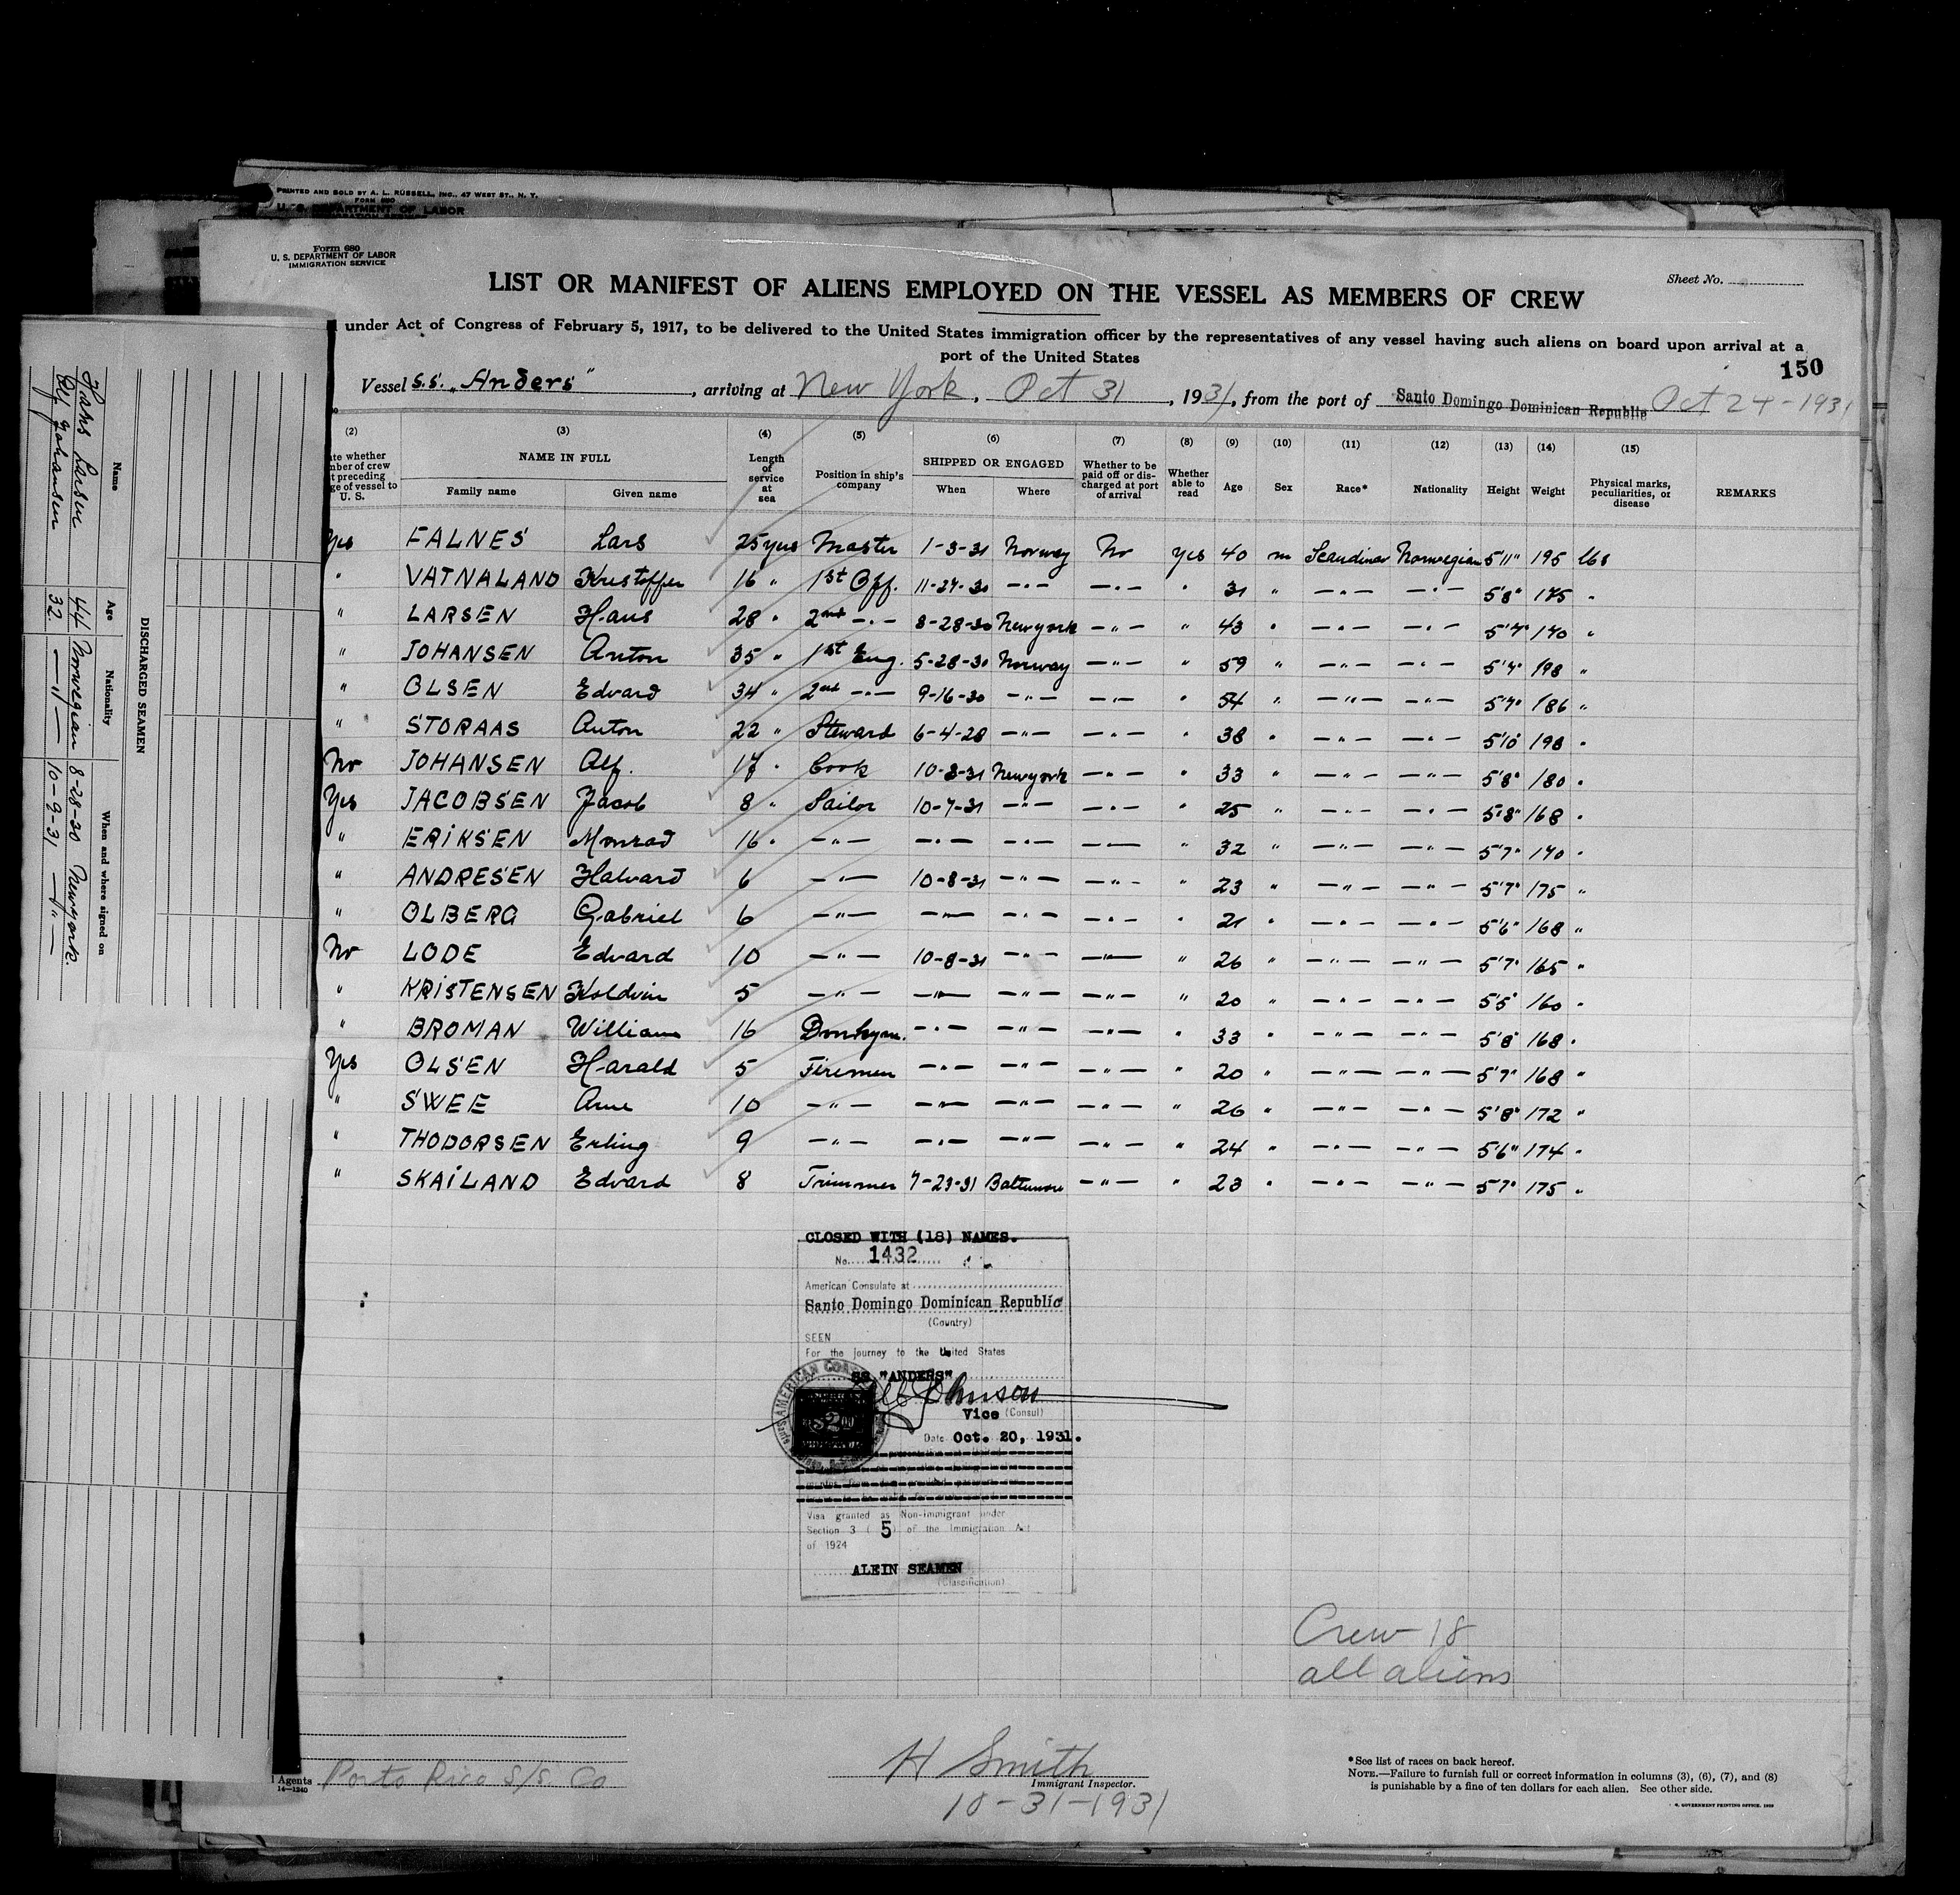 PRINTED AND SOLD BY A. L. RUSSELL, INC., 47 WEST ST., N. Y.
FORM 680
U. S. DEPARTMENT OF LABOR
Form 680
U. S. DEPARTMENT OF LABOR
IMMIGRATION SERVICE
Sheet No.
LIST OR MANIFEST OF ALIENS EMPLOYED ON THE VESSEL AS MEMBERS OF CREW
under Act of Congress of February 5, 1917, to be delivered to the United States immigration officer by the representatives of any vessel having such aliens on board upon arrival at a
port of the United States
150
Vessel S.S. „Anders", arriving at New York, Oct 31, 1931, from the port of Santo Domingo Dominican Republic Oct 24-1931
(2) (3) (4) (5) (6) (7) (8) (9) (10) (11) (12) (13) (14) (15)
te whether mber of crew t preceding ge of vessel to U. S. NAME IN FULL Family name Given name Length of service at sea Position in ship's company SHIPPED OR ENGAGED When Where Whether to be paid off or discharged at port of arrival Whether able to read Age Sex Race* Nationality Height Weight Physical marks, peculiarities, or disease REMARKS
Yes FALNES Lars 25 yrs Master 1-3-31 Norway No yes 40 m Scandinav Norwegian 5'11" 195 lbs
" VATNALAND Kristoffer 16 " 1st Off. 11-27-30 -"- -"- " 31 " -"- -"- 5'8" 175 "
" LARSEN Hans 28 " 2nd -"- 8-28-30 New york -"- " 43 " -"- -"- 5'7" 170 "
" JOHANSEN Anton 35 " 1st Eng. 5-28-30 Norway -"- " 59 " -"- -"- 5'7" 198 "
" OLSEN Edvard 34 " 2nd -"- 9-16-30 -"- -"- " 54 " -"- -"- 5'7" 186 "
" STORAAS Anton 22 " Steward 6-4-28 -"- -"- " 38 " -"- -"- 5'10" 198 "
No JOHANSEN Alf. 17 " Cook 10-8-31 New york -"- " 33 " -"- -"- 5'8" 180 "
Yes JACOBSEN Jacob 8 " Sailor 10-7-31 -"- -"- " 25 " -"- -"- 5'8" 168 "
" ERIKSEN Monrad 16 " -"- -"- -"- -"- " 32 " -"- -"- 5'7" 170 "
" ANDRESEN Halvard 6 -"- 10-8-31 -"- -"- " 23 " -"- -"- 5'7" 175 "
" OLBERG Gabriel 6 -"- -"- -"- -"- " 21 " -"- -"- 5'6" 168 "
No LODE Edvard 10 -"- 10-8-31 -"- -"- " 26 " -"- -"- 5'7" 165 "
" KRISTENSEN Holdvin 5 -"- -"- -"- -"- " 20 " -"- -"- 5'5" 160 "
" BROMAN William 16 Donkym. -"- -"- -"- " 33 " -"- -"- 5'8" 168 "
Yes OLSEN Harald 5 Firemen -"- -"- -"- " 20 " -"- -"- 5'7" 168 "
" SWEE Arne 10 -"- -"- -"- -"- " 26 " -"- -"- 5'8" 172 "
" THODORSEN Erling 9 -"- -"- -"- -"- " 24 " -"- -"- 5'6" 174 "
" SKAILAND Edvard 8 Trimmer 7-23-31 Baltimore -"- " 23 " -"- -"- 5'7" 175 "
CLOSED WITH (18) NAMES.
No. 1432
American Consulate at
Santo Domingo Dominican Republic
(Country)
SEEN
For the journey to the United States
SS "ANDERS"
Johnson
Vice (Consul)
Date Oct. 20, 1931.
AMERICAN
$2.00
Visa granted as Non-immigrant under
Section 3 ( 5 ) of the Immigration Act
of 1924
ALEIN SEAMEN
(Classification)
Crew 18
all aliens
l Agents Porto Rico S/S. Co
14-1240
H Smith
Immigrant Inspector.
10-31-1931
*See list of races on back hereof.
NOTE.—Failure to furnish full or correct information in columns (3), (6), (7), and (8)
is punishable by a fine of ten dollars for each alien. See other side.
GOVERNMENT PRINTING OFFICE
DISCHARGED SEAMEN
Name Age Nationality When and where signed on
Hans Larsen 44 Norwegian 8-28-30 New york.
Alf Johansen 32 -"- 10-9-31 -"-